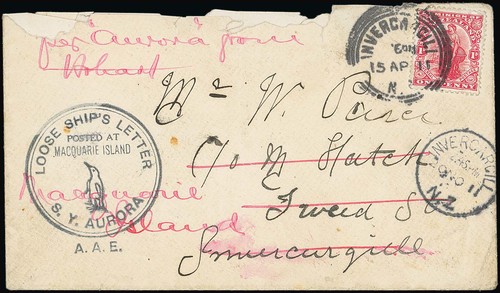 per "Aurora" from
Hobart
INVERCARGILL
15 AP 11
N.Z
ONE PENNY
Mr W.
C/o M Hatch
Tweed St
Invercargill
Macquarie
Island
LOOSE SHIP'S LETTER
POSTED AT
MACQUARIE ISLAND
S. Y. AURORA
A. A. E.
INVERCARGILL
11
N.Z